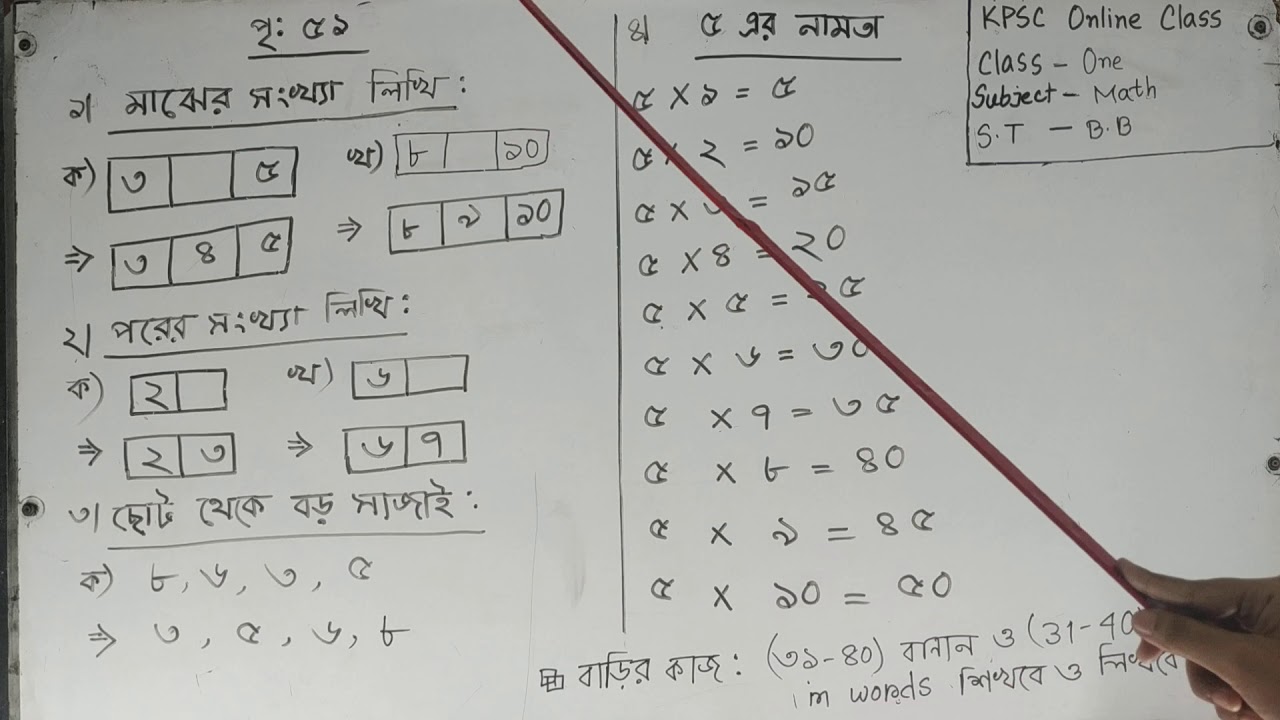 পৃঃ ৫১
১। মাঝের সংখ্যা লিখি :
ক) ৩ ৫
খ) ৮ ১০
⇒ ৩ ৪ ৫
⇒ ৮ ৯ ১০
২। পরের সংখ্যা লিখি :
ক) ২
খ) ৬
⇒ ২ ৩
⇒ ৬ ৭
৩। ছোট থেকে বড় সাজাই :
ক) ৮, ৬, ৩, ৫
⇒ ৩, ৫, ৬, ৮
৪। ৫ এর নামতা
৫ × ১ = ৫
৫ × ২ = ১০
৫ × = ১৫
৫ × ৪ = ২০
৫ × ৫ = ২৫
৫ × ৬ = ৩০
৫ × ৭ = ৩৫
৫ × ৮ = ৪০
৫ × ৯ = ৪৫
৫ × ১০ = ৫০
KPSC Online Class
Class - One
Subject - Math
S.T - B.B
বাড়ির কাজ : (৩১-৪০) বানান ও (31-40)
in words শিখবে ও লিখবে